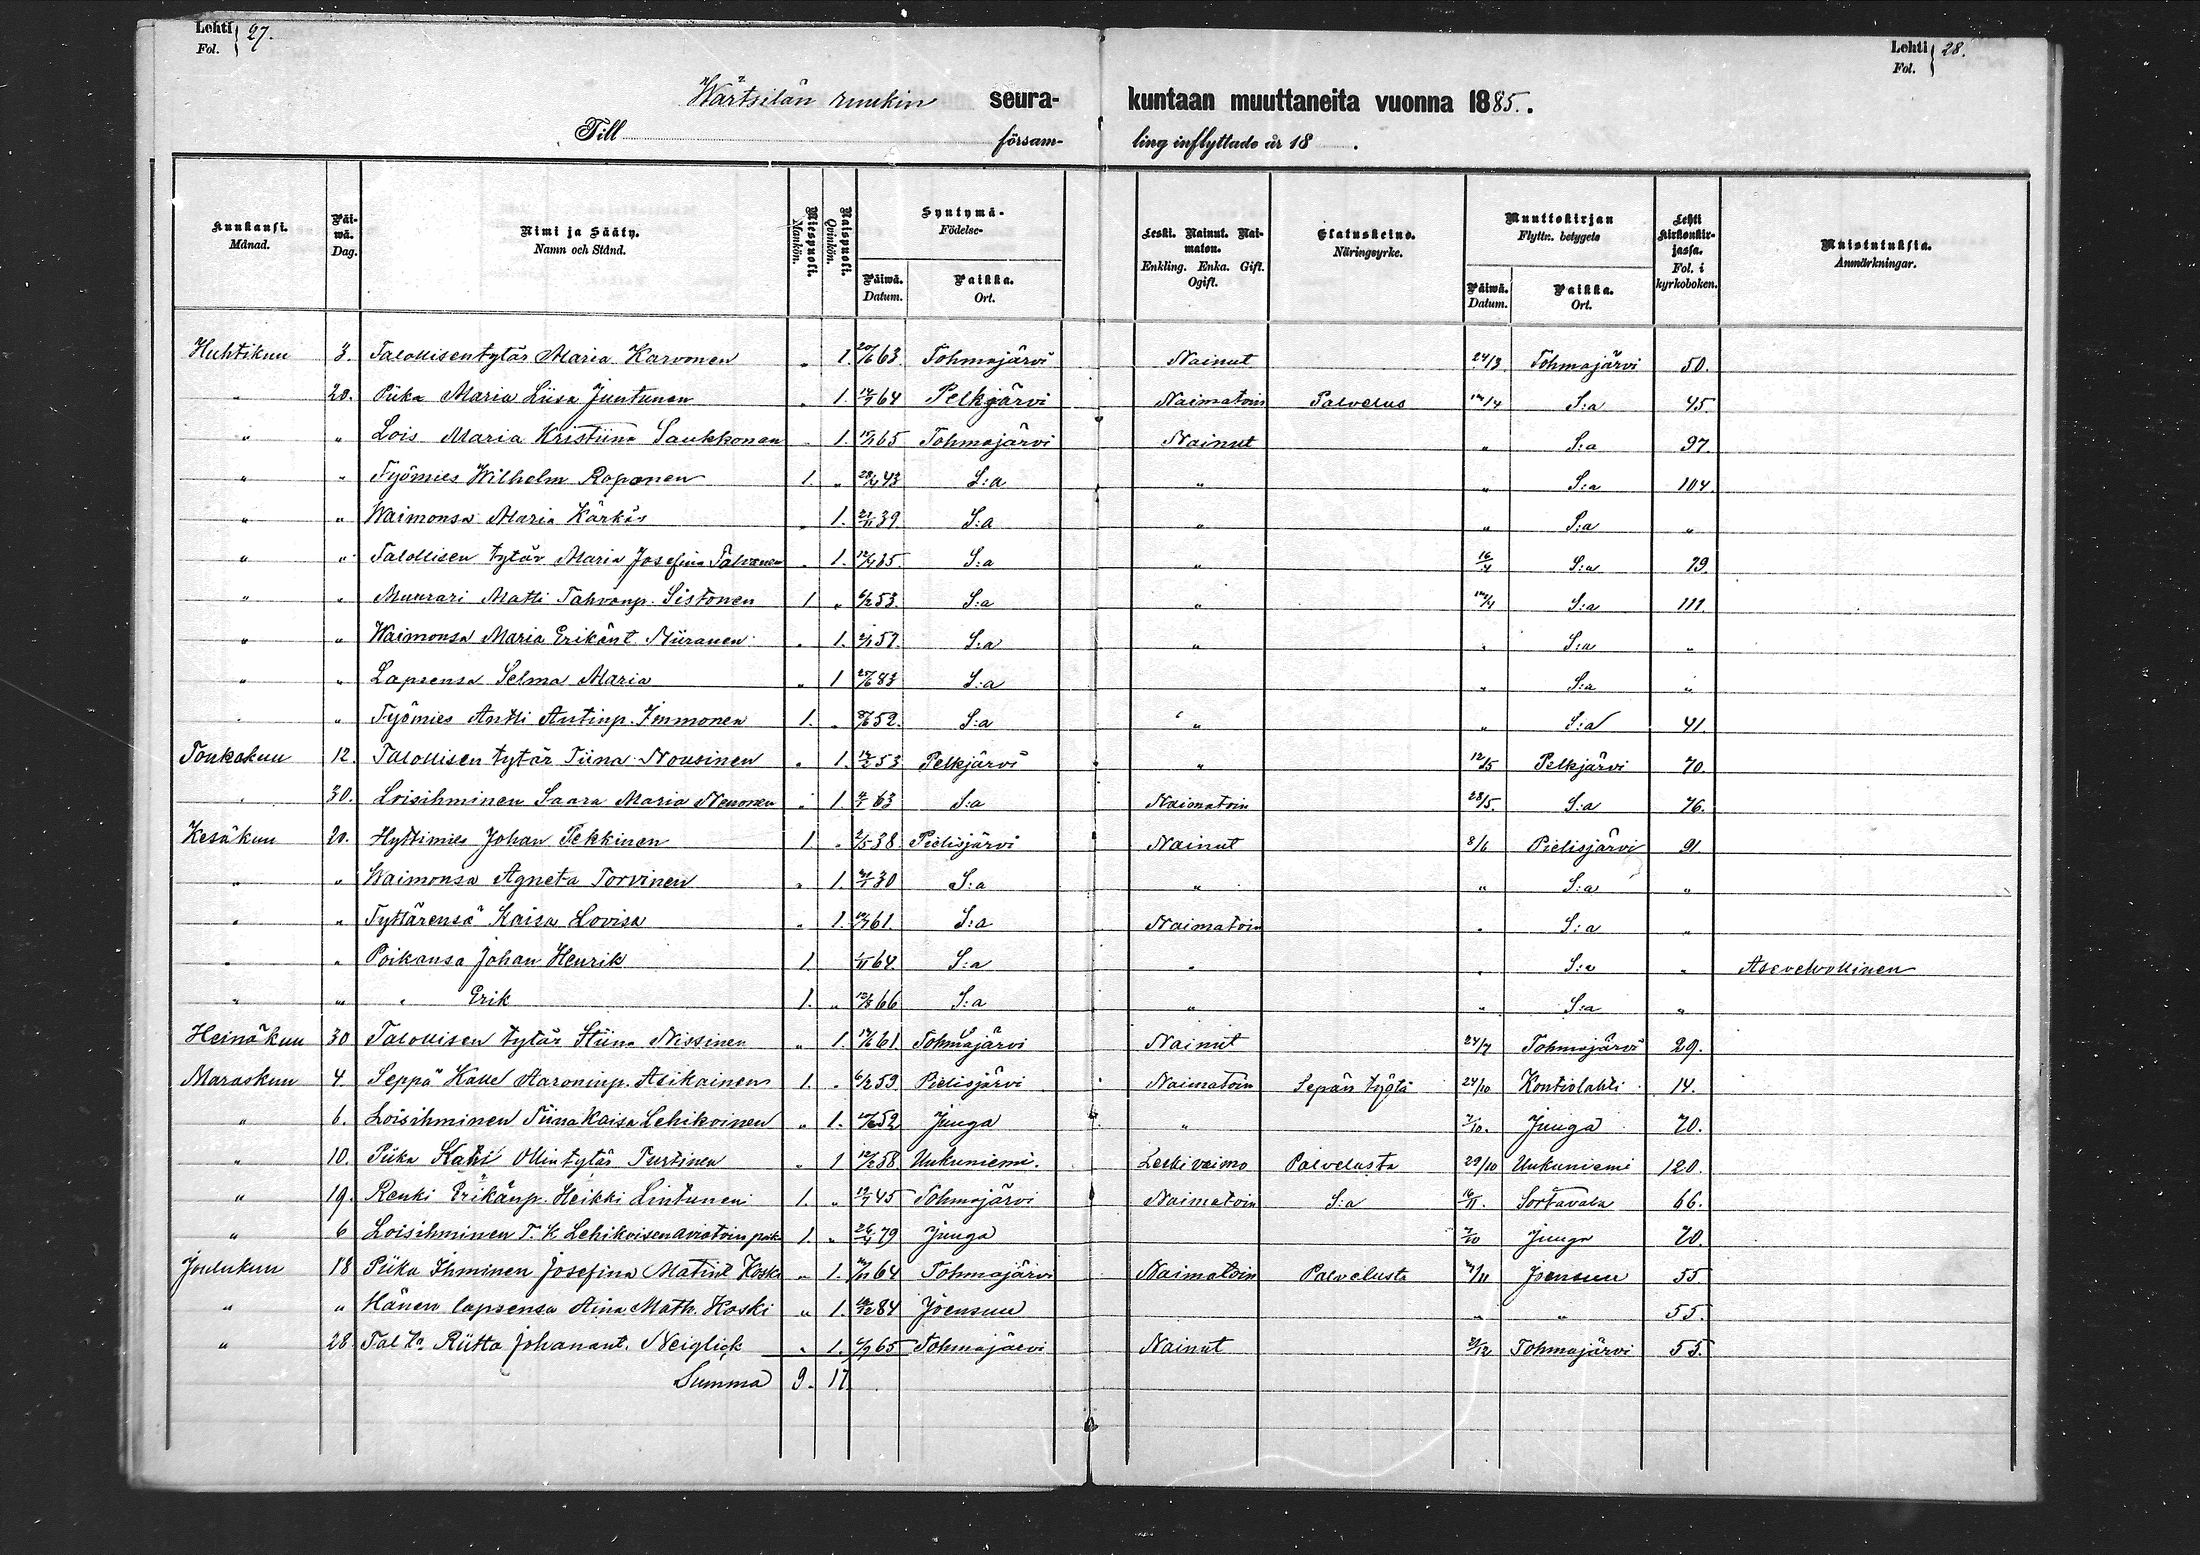 Lehti } 27.
Fol.
Lehti } 28.
Fol.
Wärtsilän ruukin seura- kuntaan muuttaneita vuonna 1885.
Till försam- ling inflyttade år 18 .
Kuukausi. Månad. Päi-wä. Dag. Nimi ja Sääty. Namn och Stånd. Miespuoli. Mankön. Naispuoli. Qvinkön. Syntymä- Födelse- Päiwä. Datum. Paikka. Ort. Leski. Nainut. Nai-maton. Enkling. Enka. Gift. Ogift. Elatuskeino. Näringsyrke. Muuttokirjan Flyttn. betygets Päiwä. Datum. Paikka. Ort. Lehti kirkonkir-jassa. Fol. i kyrkoboken. Muistutuksia. Anmärkningar.
Huhtikuu 3. Talollisentytär Maria Karvonen " 1. 63. Tohmajärvi Nainut 24/3 Tohmajärvi 50.
" 20. Piika Maria Liisa Juntunen " 1. 64 Pelkjärvi Naimatoin Palvelus 14/4 S:a 45
" " Lois Maria Kristiina Saukkonen " 1. 65 Tohmajärvi Nainut " S:a 97.
" " Työmies Wilhelm Roponen 1. " 43 S:a " " S:a 104.
" " Waimonsa Maria Kärkäs " 1. 39 S:a " " S:a "
" " Talollisen tytär Maria Josefina " 1. 35. S:a " 16/4 S:a 79.
" " Muurari Matti Tahvonp. Sistonen 1 " 53. S:a " S:a 111.
" " Waimonsa Maria Erikänt. Niiranen " 1. 57. S:a " " S:a "
" " Lapsensa Selma Maria " 1 83 S:a " S:a "
" " Työmies Antti Antinp. Immonen 1. " 52. S:a " " S:a 41.
Toukokuu 12. Talollisen tytär Tiina Nousinen " 1. 53 Pelkjärvi " 12/5 Pelkjärvi 70.
" 30. Loisihminen Saara Maria Nenonen " 1. 63 S:a Naimatoin 28/5. S:a 76.
Kesäkuu 20. Hyttimies Johan Pekkinen 1. " 2/5 38. Pielisjärvi Nainut 8/6 Pielisjärvi 91.
" " Waimonsa Agneta Torvinen " 1. 30 S:a " " S:a "
" " Tyttärensä Kaisa Lovisa " 1. 61. S:a Naimatoin " S:a "
" " Poikansa Johan Henrik 1. 64. S:a " " S:a " Asevelvollinen
" " " Erik 1. " 66 S:a " " S:a "
Heinäkuu 30 Talollisen tytär Stiina Nissinen " 1. 61. Tohmajärvi Nainut 24/7 Tohmajärvi 29.
Maraskuu 4. Seppä Kalle Aaroninp. Asikainen 1. " 59. Pielisjärvi Naimatoin Sepän työtä 24/10 Kontiolahti 14.
" 6. Loisihminen Tiina Kaisa Lehikoinen " 1. 52 Juuga " 7/10. Juuga 70.
" 10. Piika Kati Ollintytär Turtinen " 1 58 Uukuniemi. Leskivaimo Palvelusta 29/10 Uukuniemi 120.
" 19. Renki Erikänp. Heikki Lintunen 1. " 45 Tohmajärvi Naimatoin S:a 16/11. Sortavala 66.
" 6 Loisihminen T. K. Lehikoisen aviotoin poik 1. " 79 Juuga 7/10 Juuga 70.
Joulukuu 18 Piika Ihminen Josefina Matint Koski " 1. 64 Tohmajärvi Naimatoin Palvelusta Joensuu 55
" " Hänen lapsensa Aina Math. Koski " 1. 84 Joensuu " " 55.
" 28. Tal. Riitta Johanant. Neiglick " 1. 65 Tohmajärvi Nainut Tohmajärvi 55.
Summa 9. 17.